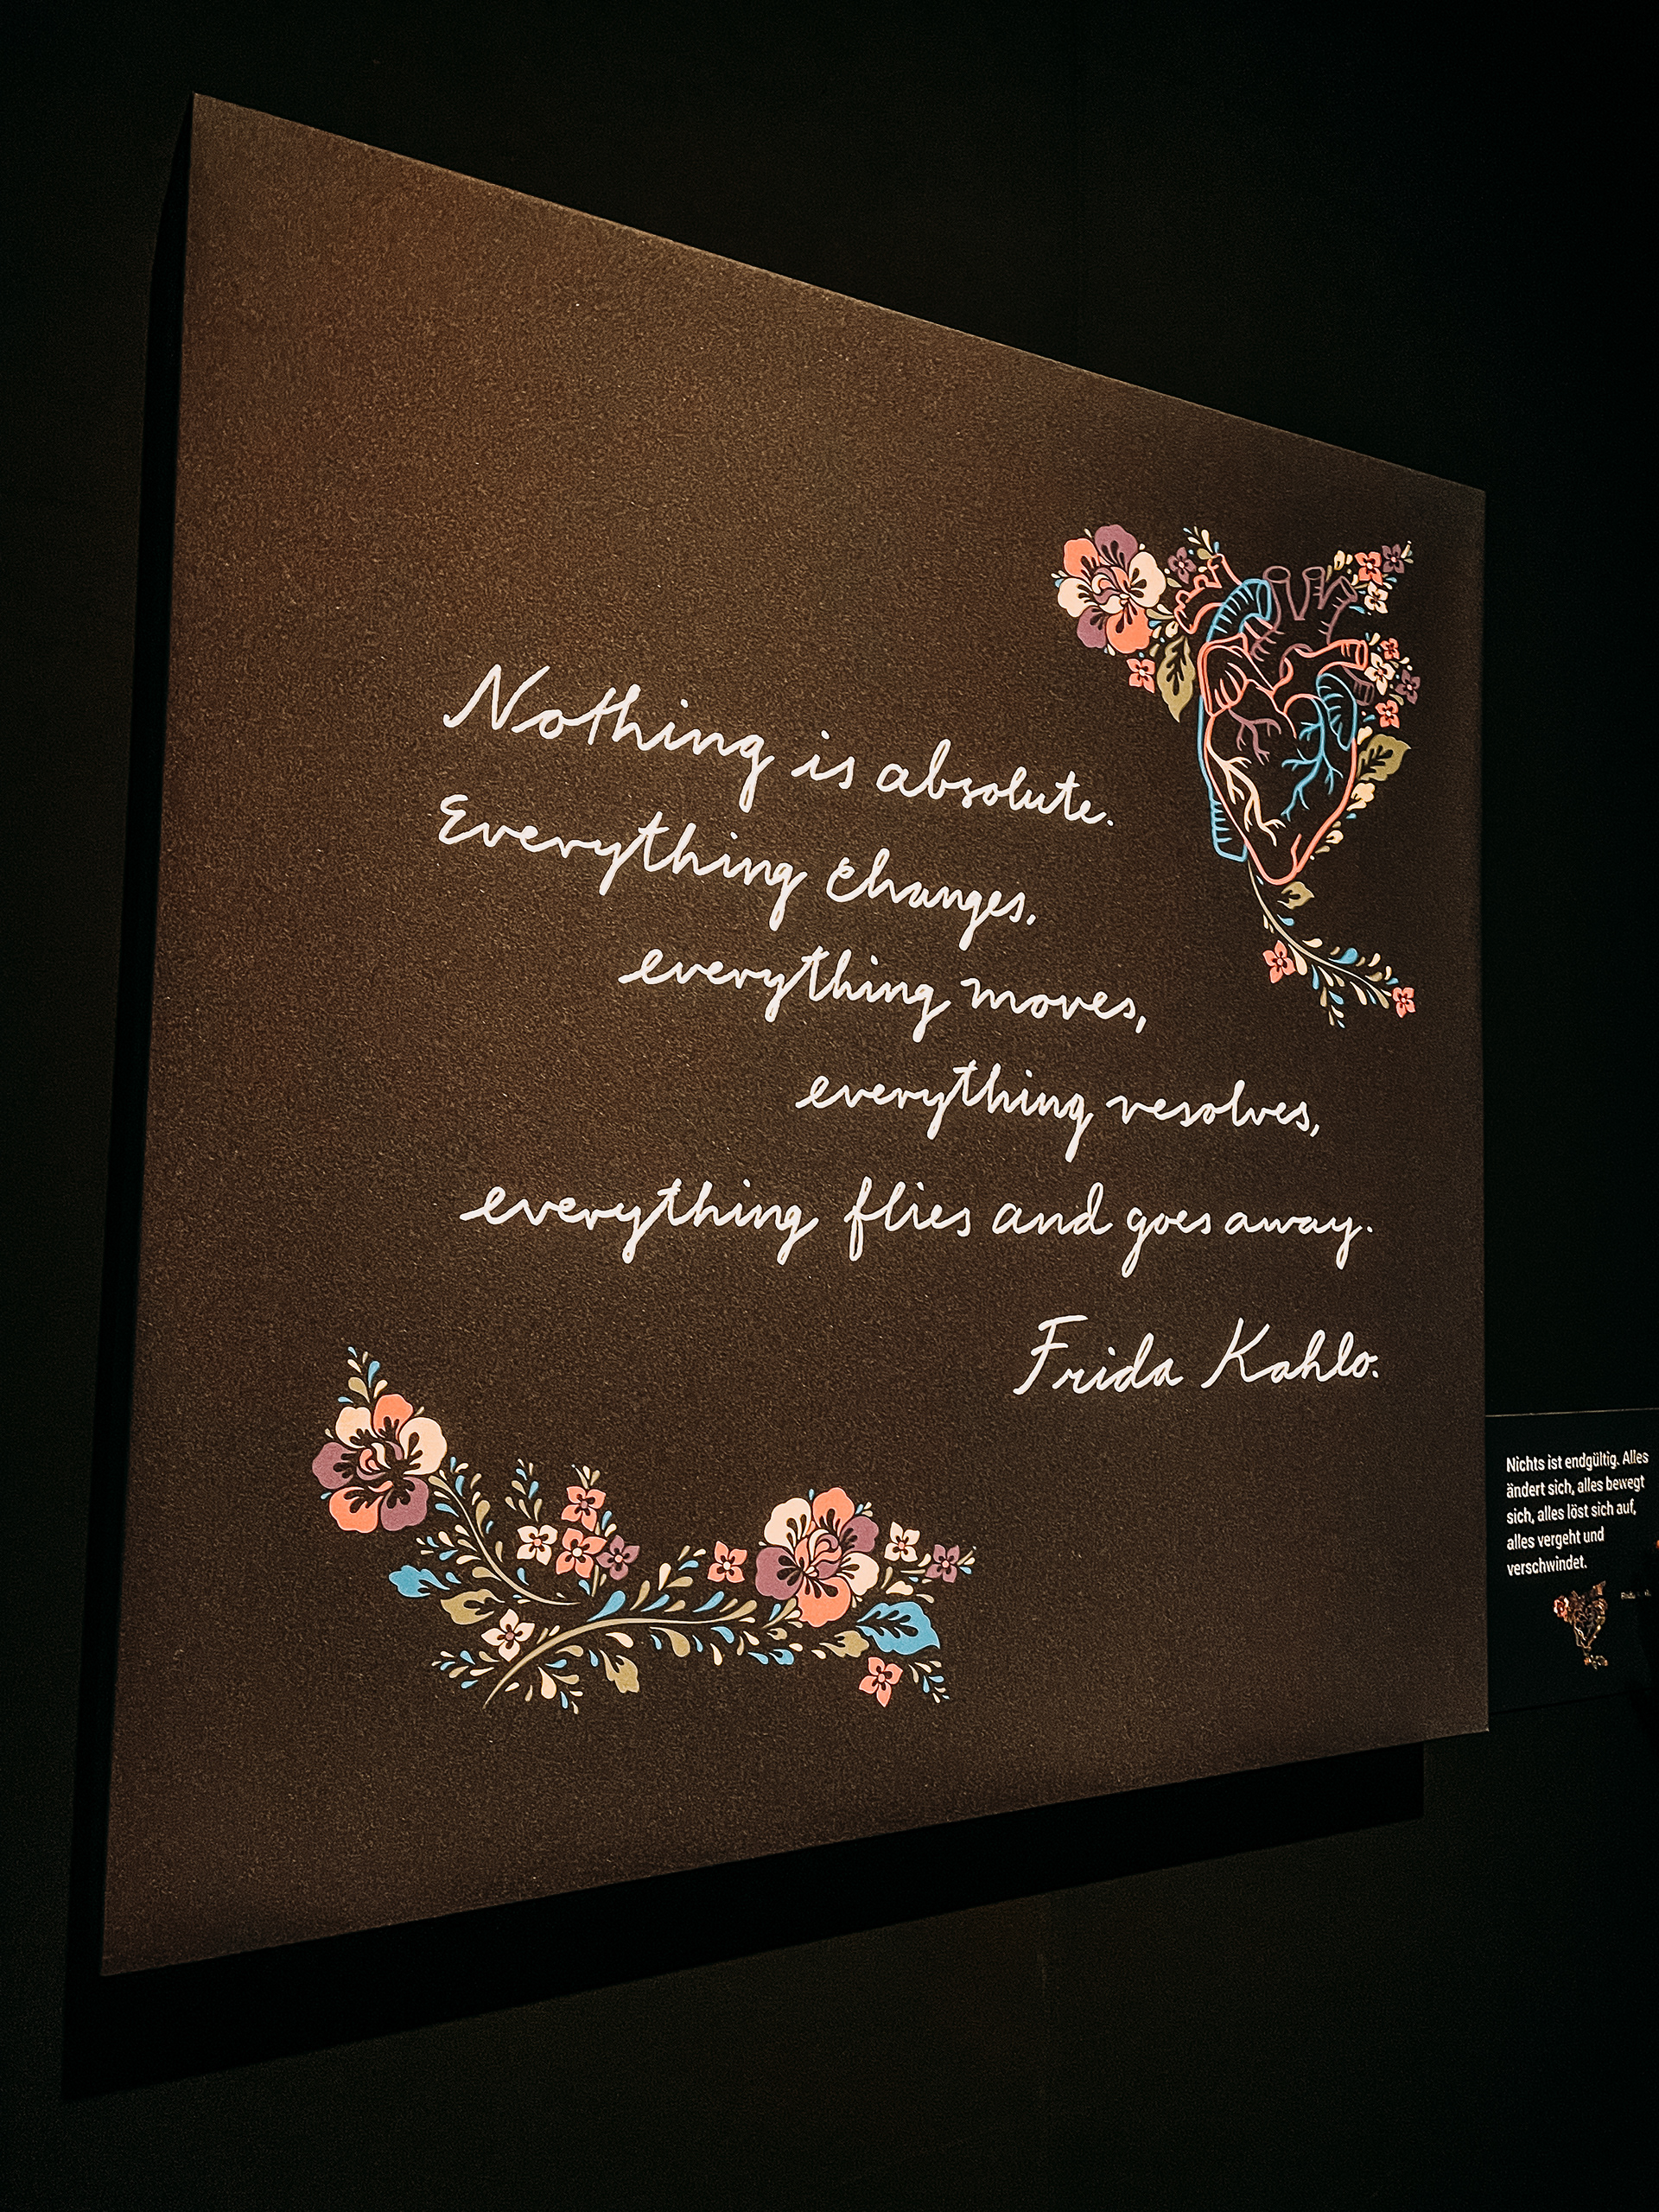 Nothing is absolute.
Everything changes,
everything moves,
everything resolves,
everything flies and goes away.
Frida Kahlo.
Nichts ist endgültig. Alles
ändert sich, alles bewegt
sich, alles löst sich auf,
alles vergeht und
verschwindet.